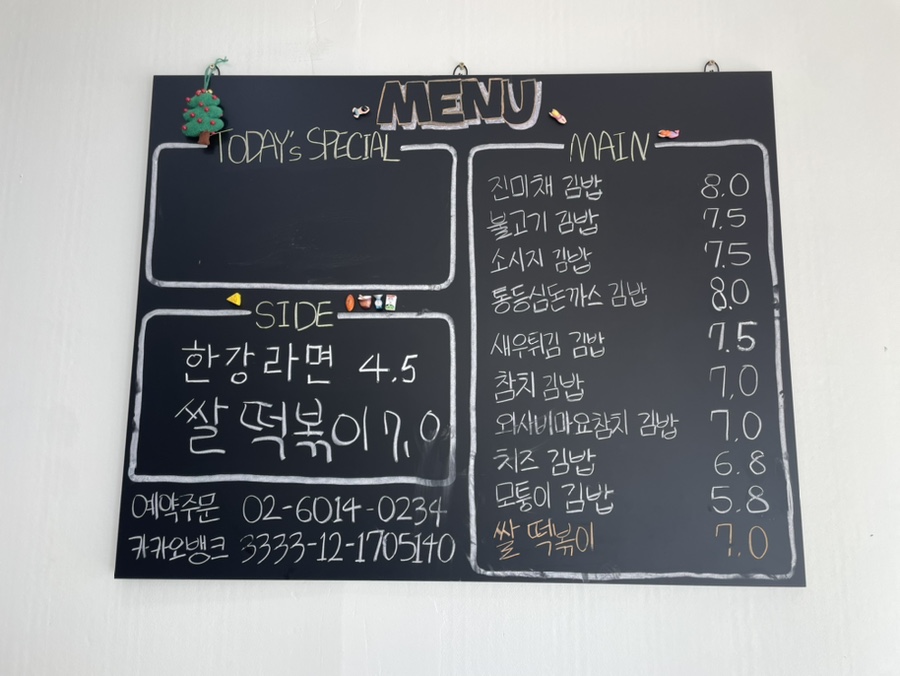 MENU
TODAY's SPECIAL
SIDE
한강라면 4.5
쌀 떡볶이 7.0
예약주문 02-6014-0234
카카오뱅크 3333-12-1705140
MAIN
진미채 김밥 8.0
불고기 김밥 7.5
소시지 김밥 7.5
통등심돈까스 김밥 8.0
새우튀김 김밥 7.5
참치 김밥 7.0
와사비마요참치 김밥 7.0
치즈 김밥 6.8
모통이 김밥 5.8
쌀 떡볶이 7.0